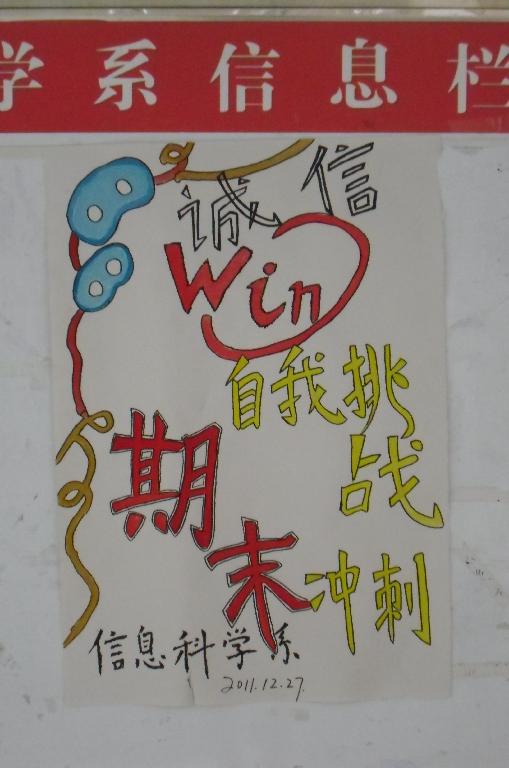 学系信息栏
诚信
Win
自我挑
战
期
末冲刺
信息科学系
2011.12.27.